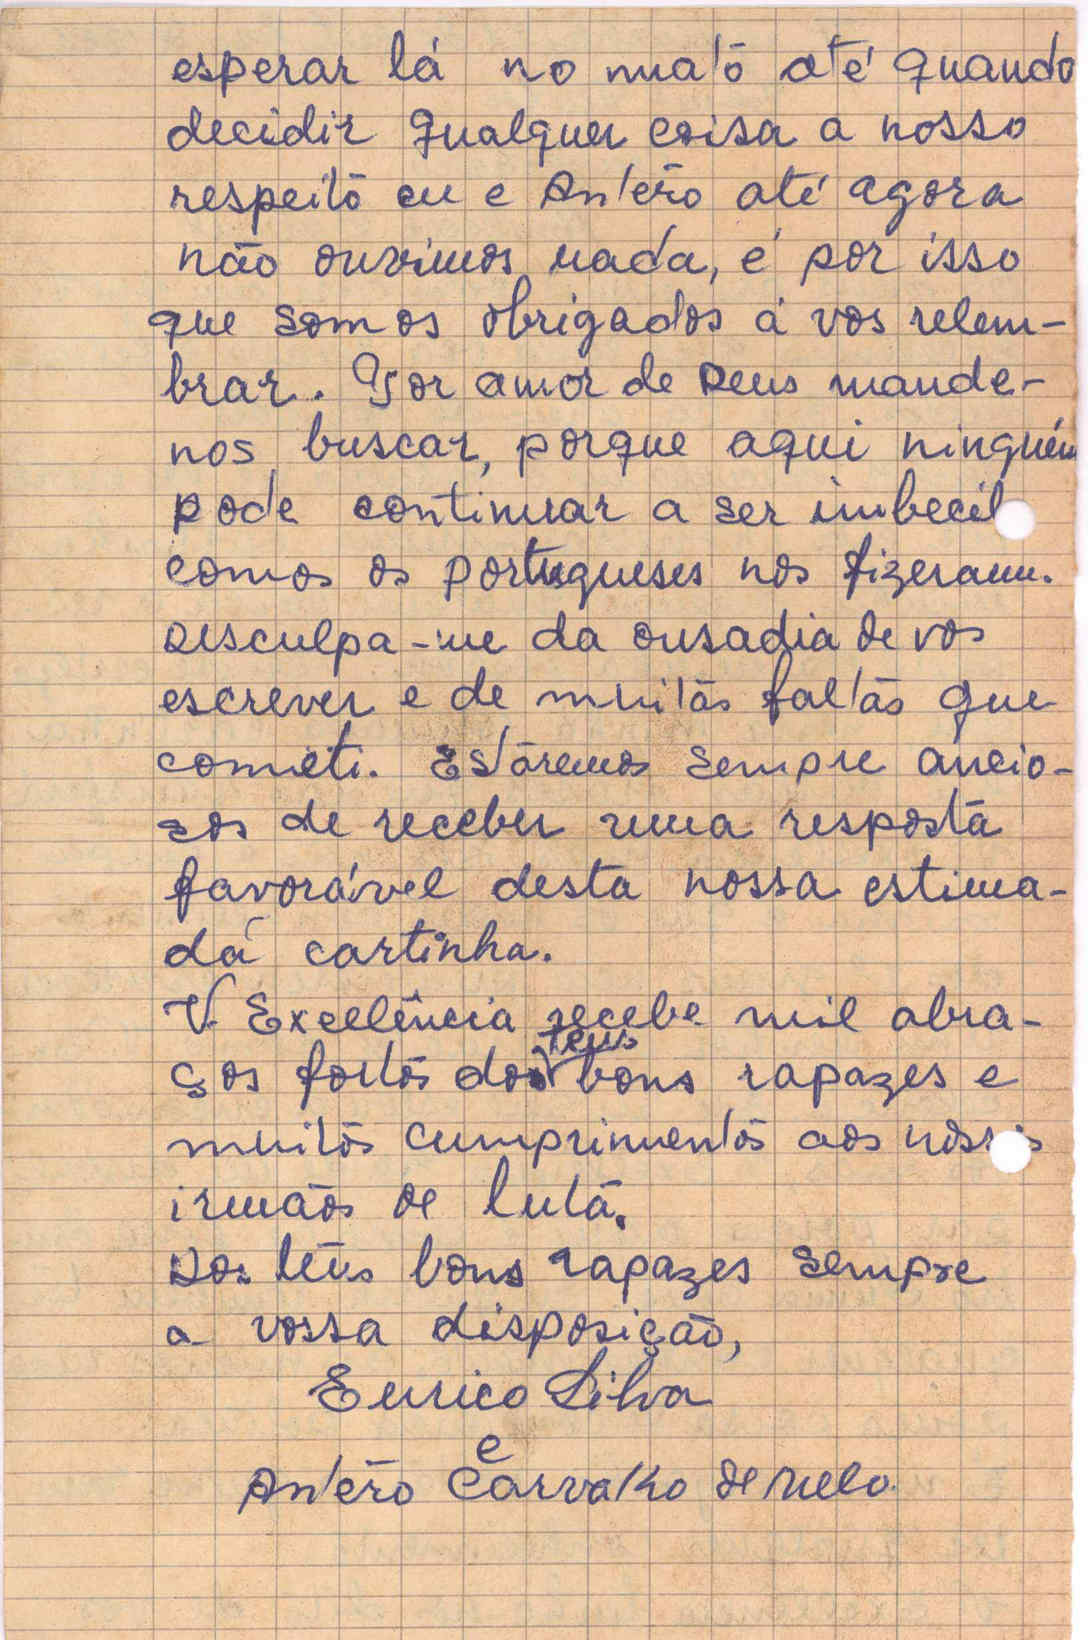 esperar lá no mato até quando
decidir qualquer coisa a nosso
respeito eu e Antero até agora
não ouvimos nada, é por isso
que somos obrigados á vos relem-
brar. Por amor de Deus mande-
nos buscar, porque aqui ninguém
pode continuar a ser imbecil
comos os portugueses nos fizeram.
Desculpa-me da ousadia de vos
escrever e de muitas faltas que
cometi. Estaremos sempre ancio-
sos de receber uma resposta
favorável desta nossa estima-
da cartinha.
V. Excelência recebe mil abra-
ços fortes dos teus bons rapazes e
muitos cumprimentos aos nossos
irmãos de luta.
Dos teus bons rapazes sempre
a vossa disposição,
Eurico Silva
e
Antero Carvalho de Melo.